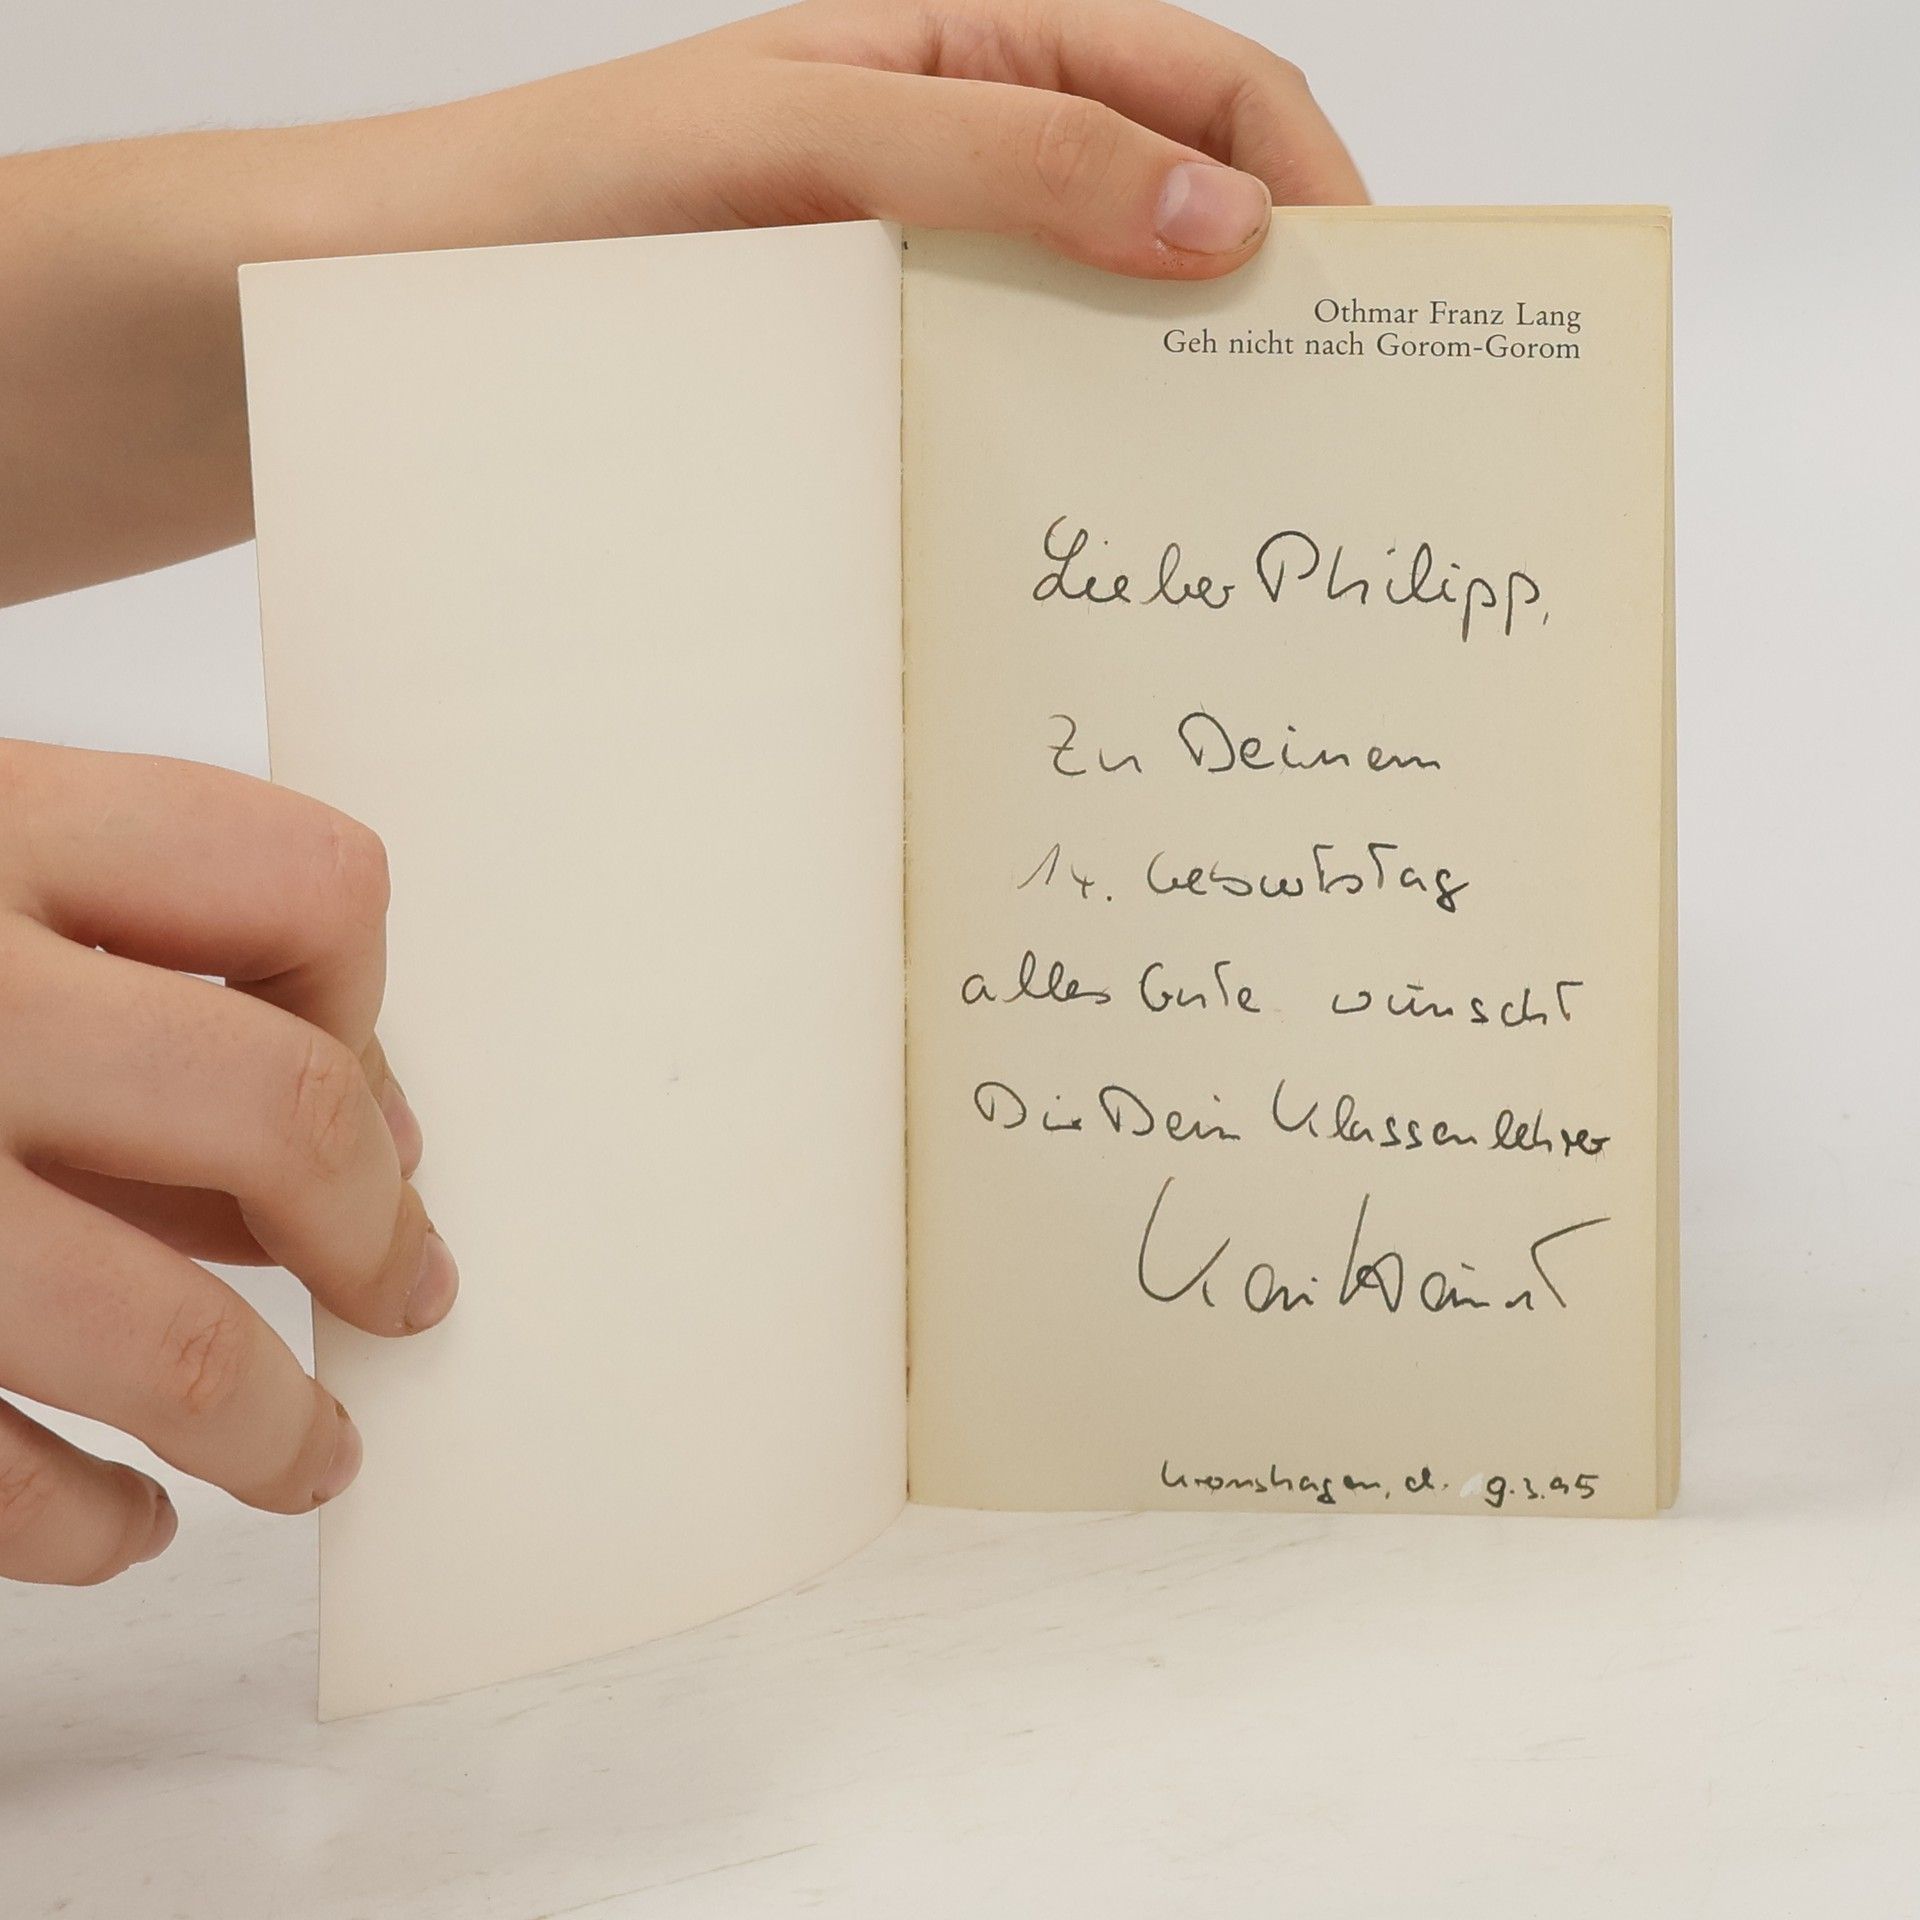 Othmar Franz Lang
Geh nicht nach Gorom-Gorom
Lieber Philipp,
Zu Deinem
14. Geburtstag
alles Gute wünscht
Dir Dein Klassenlehrer
Kronshagen, d. 9.3.95